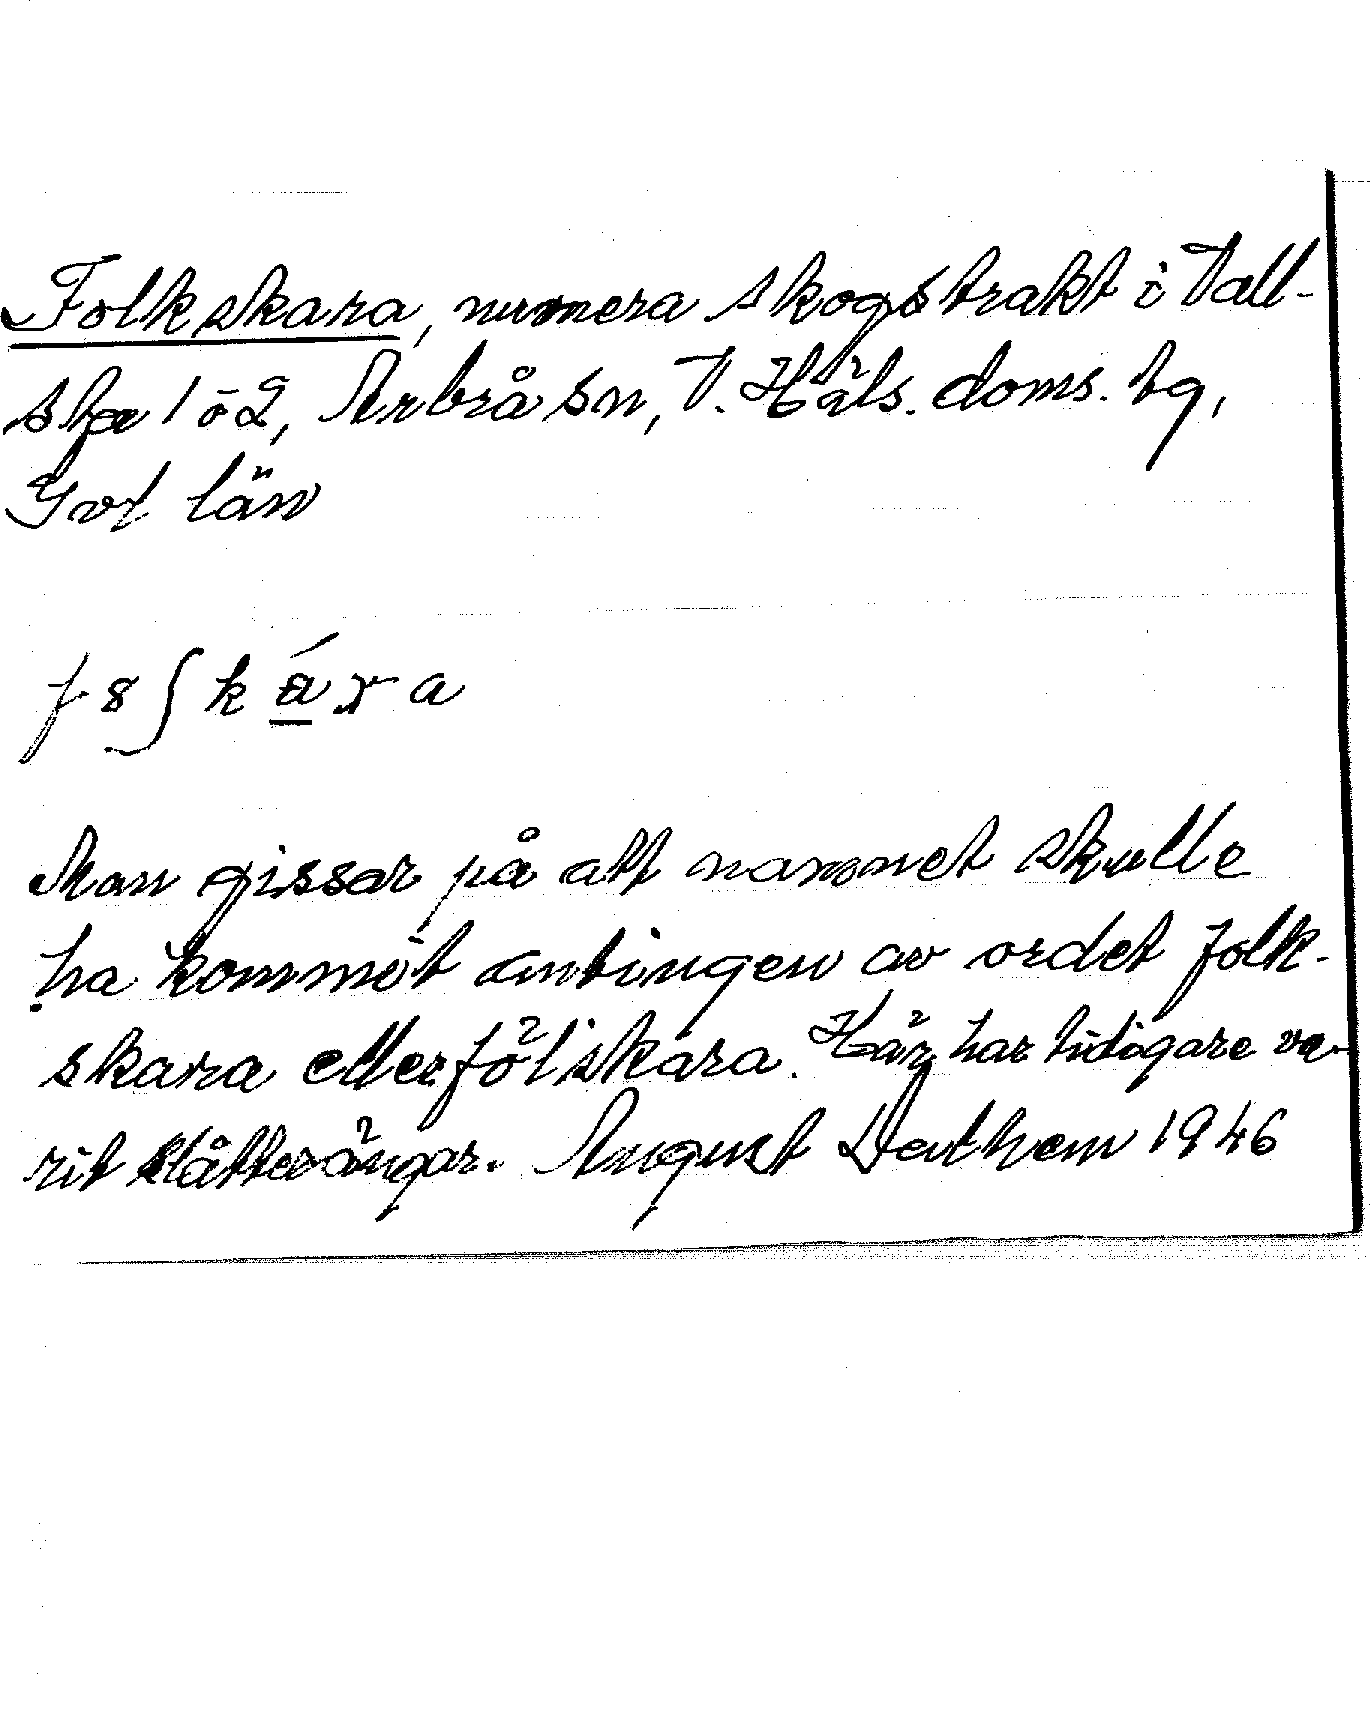 Folkskara, numera skogstrakt i Vall-
sta 1 o 2, Arbrå sn, V. Häls. doms. tg,
Gvl län
f 8 ʃ k á r a
Man gissar på att namnet skulle
ha kommit antingen av ordet folk-
skara eller fölskara. Här har tidigare va-
rit slåtterängar. August 1946